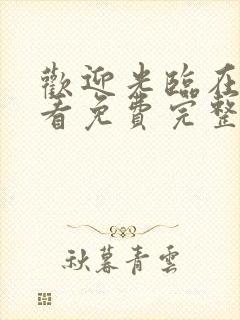 歡迎光臨在
看免費完整
秋暮青雲